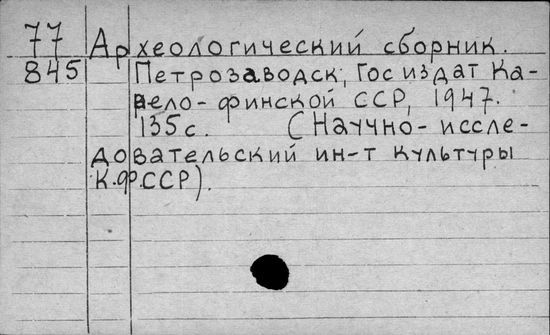 77 Археологический сборник.
845 Петрозаводск, Госиздат Ка-
рело-финской ССР, 1947.
135 с. (Научно-иссле-
довательский ин-т культуры
К.Ф.ССР).